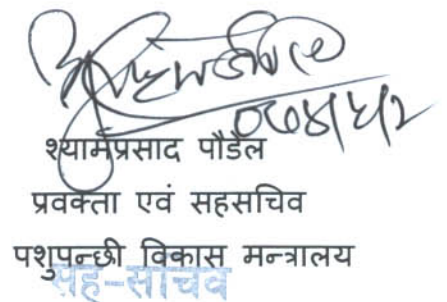 श्यामप्रसाद पौडेल
प्रवक्ता एवं सहसचिव
पशुपन्छी विकास मन्त्रालय
सह-सचिव